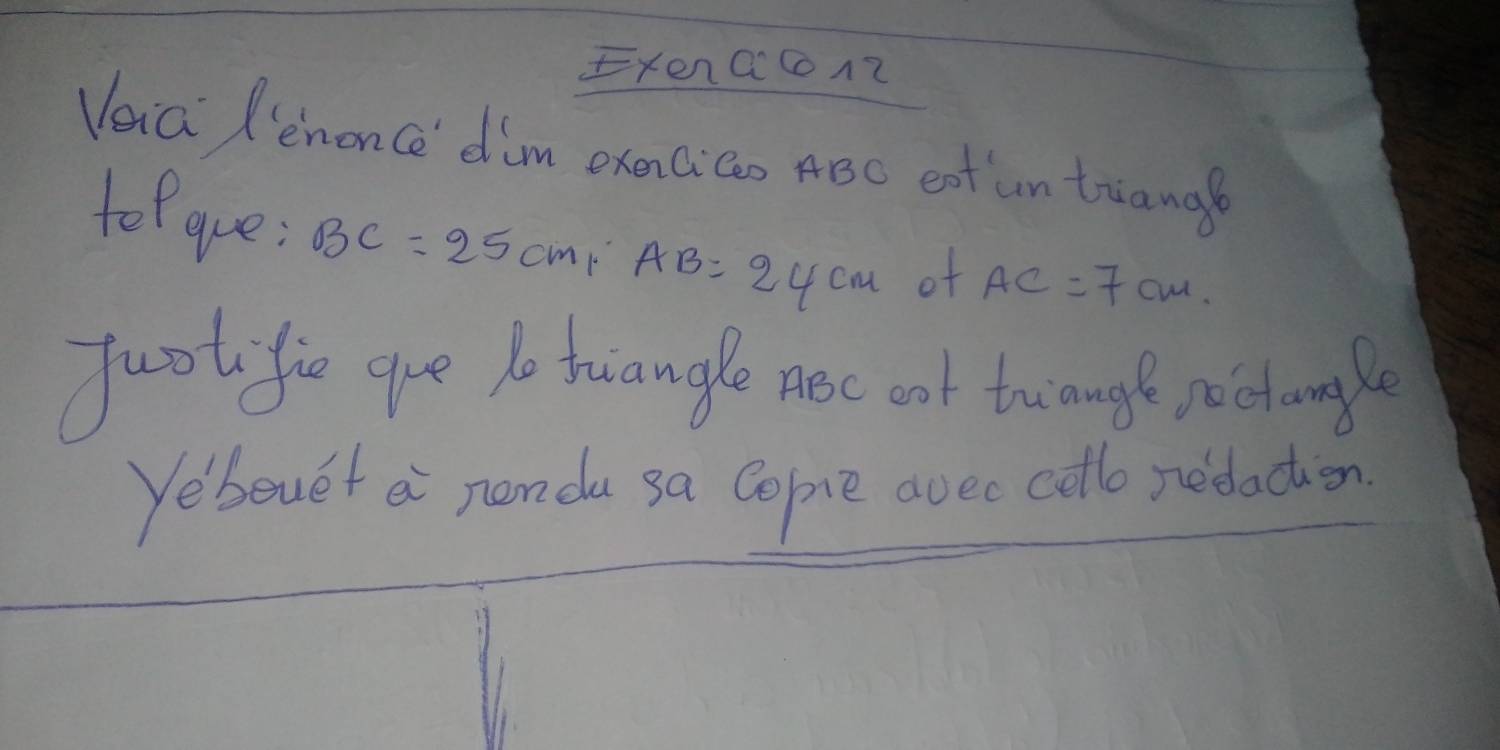 Exercice 12
Voici l'énoncé d'un exercices ABC est un triangle
tel que : BC = 25 cm; AB = 24 cm et AC = 7 cm.
Justifie que le triangle ABC est triangle réctangle
Yébouét à rendu sa Copie avec cette rédaction.